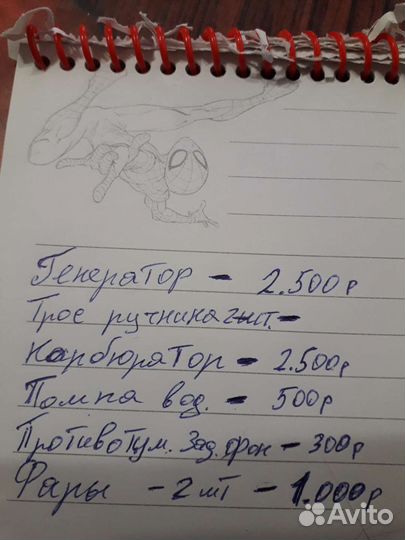 Генератор - 2.500р
Трос ручника 2шт. -
Карбюратор - 2.500р
Помпа вод. - 500р
Противотум. Зад. фон - 300р
Фары - 2 шт - 1.000р
Avito